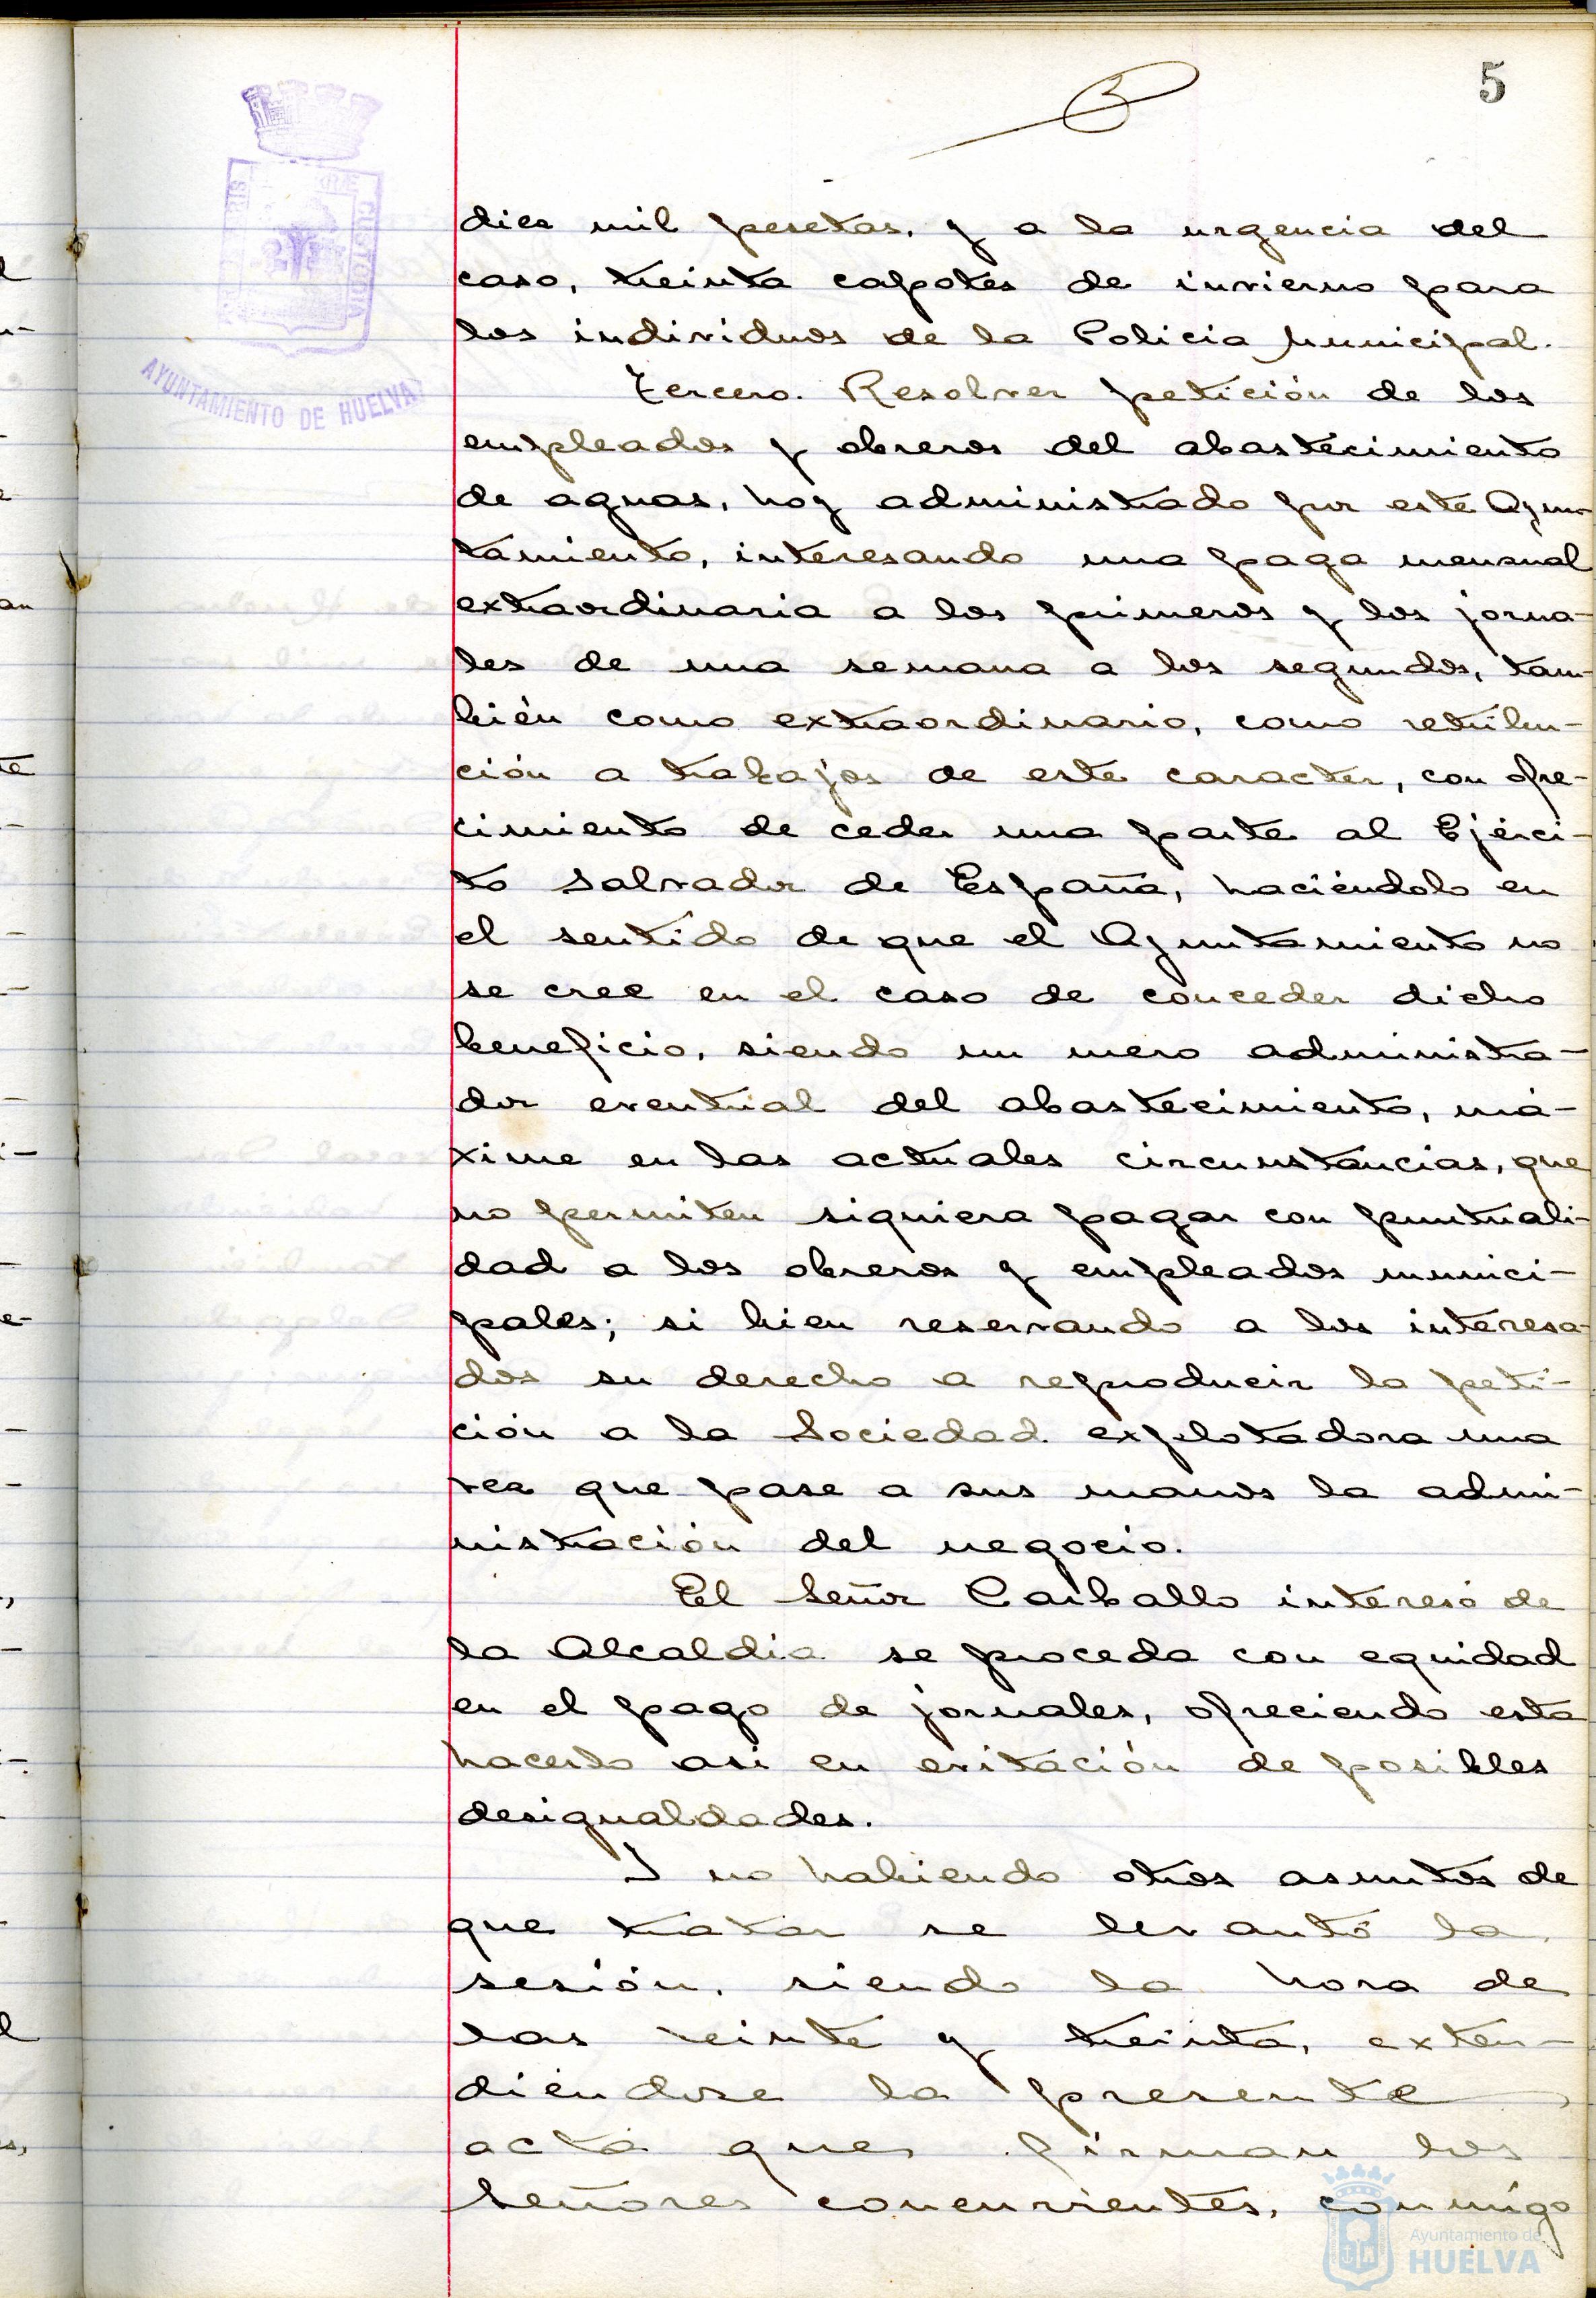 5
diez mil pesetas, y a la urgencia del
caso, treinta capotes de invierno para
los individuos de la Policia Municipal.
Tercero. Resolver petición de los
empleados y obreros del abastecimiento
de aguas, hoy administrado por este Ayun-
tamiento, interesando una paga mensual
extraordinaria a los primeros y los jorna-
les de una semana a los segundos, tam-
bién como extraordinario, como retribu-
ción a trabajos de este caracter, con ofre-
cimiento de ceder una parte al Ejérci-
to Salvador de España, haciéndolo en
el sentido de que el Ayuntamiento no
se cree en el caso de conceder dicho
beneficio, siendo un mero administra-
dor eventual del abastecimiento, má-
xime en las actuales circunstancias, que
no permiten siquiera pagar con puntuali-
dad a los obreros y empleados munici-
pales; si bien reservando a los interesa-
dos su derecho a reproducir la peti-
ción a la Sociedad explotadora una
vez que pase a sus manos la admi-
nistración del negocio.
El Señor Carballo interesó de
la Alcaldia se proceda con equidad
en el pago de jornales, ofreciendo esta
hacerlo asi en evitación de posibles
desigualdades.
Y no habiendo otros asuntos de
que tratar se levantó la
sesión, siendo la hora de
las veinte y treinta, exten-
diéndose la presente
acta que firman los
Señores concurrientes, conmigo
AYUNTAMIENTO DE HUELVA
Ayuntamiento de
HUELVA